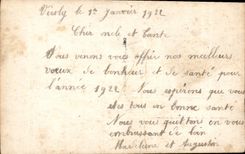 le 1er Janvier 1922
Cher et Tante
Nous venons vous offrir nos meilleurs
voeux de bonheur et de santé pour
l'année 1922. Nous espérons que vous
êtes tous en bonne santé
Nous vous quittons en vous
embrassant de loin
et Augustin